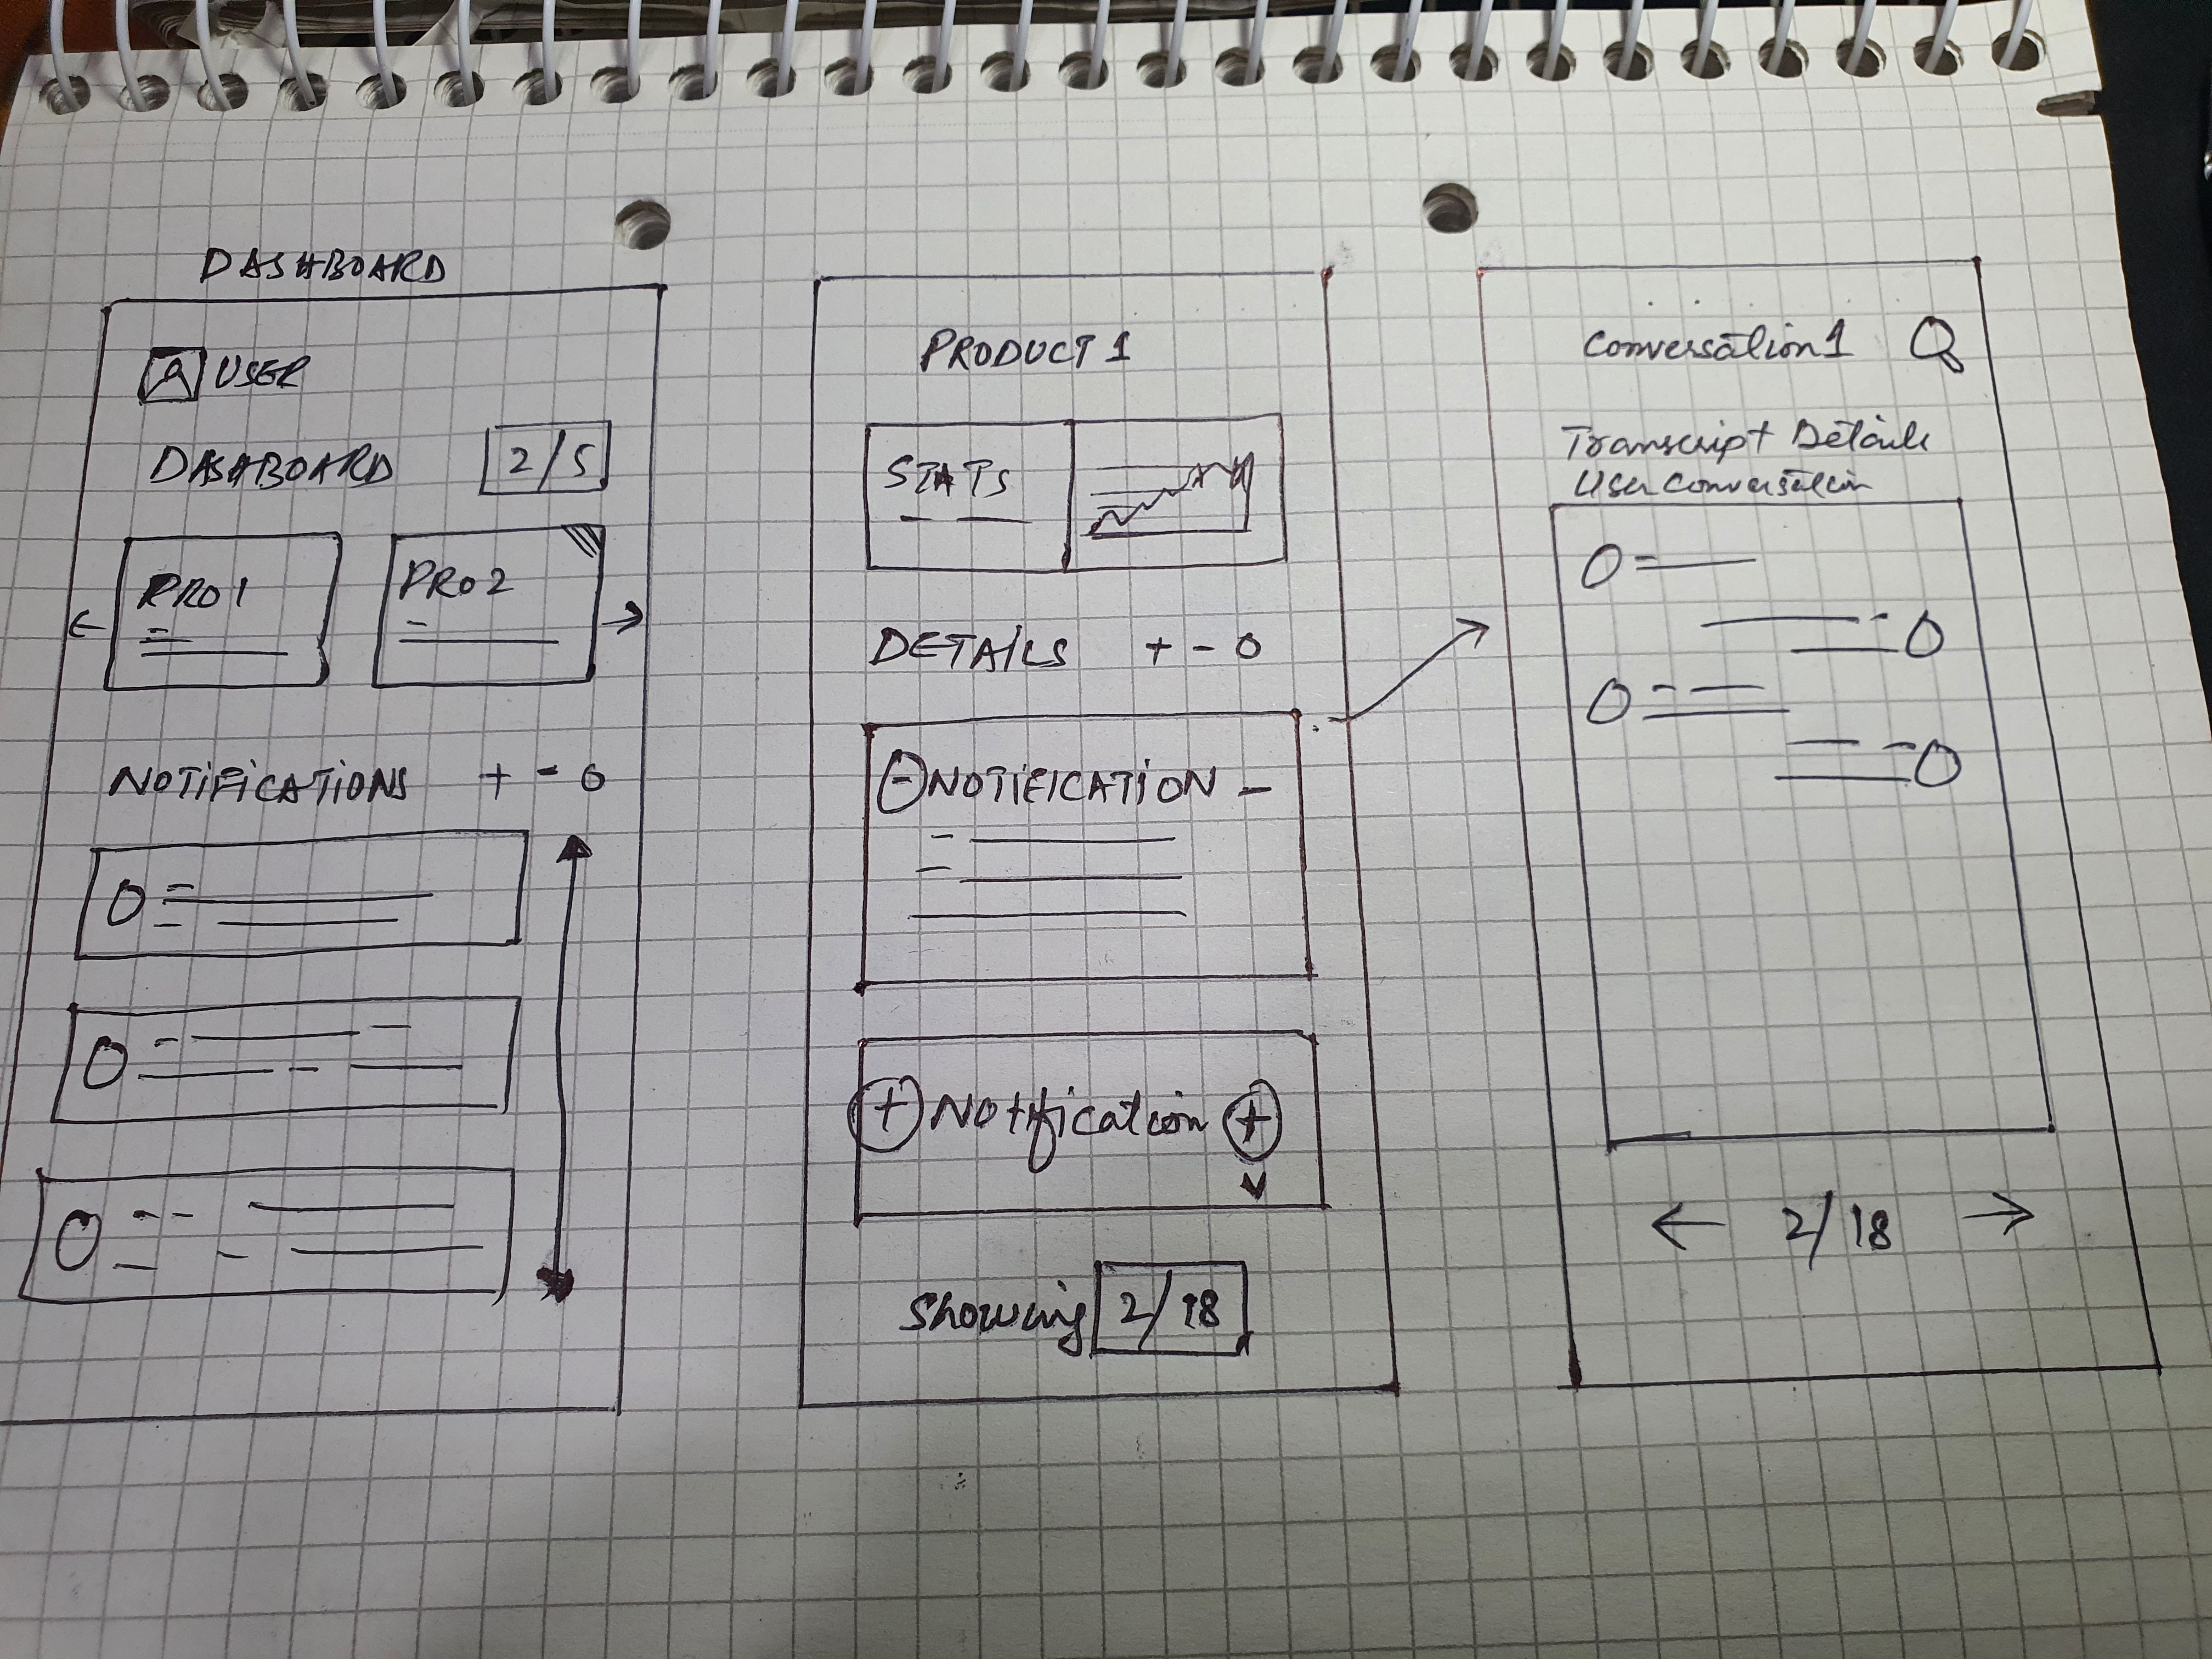 DASHBOARD
USER
DASHBOARD 2/5
PRO1 PRO2
NOTIFICATIONS + - 0
PRODUCT 1
STATS
DETAILS + - 0
- NOTIFICATION -
+ Notification +
Showing 2/18
Conversation 1
Transcript Details
User Conversation
2/18